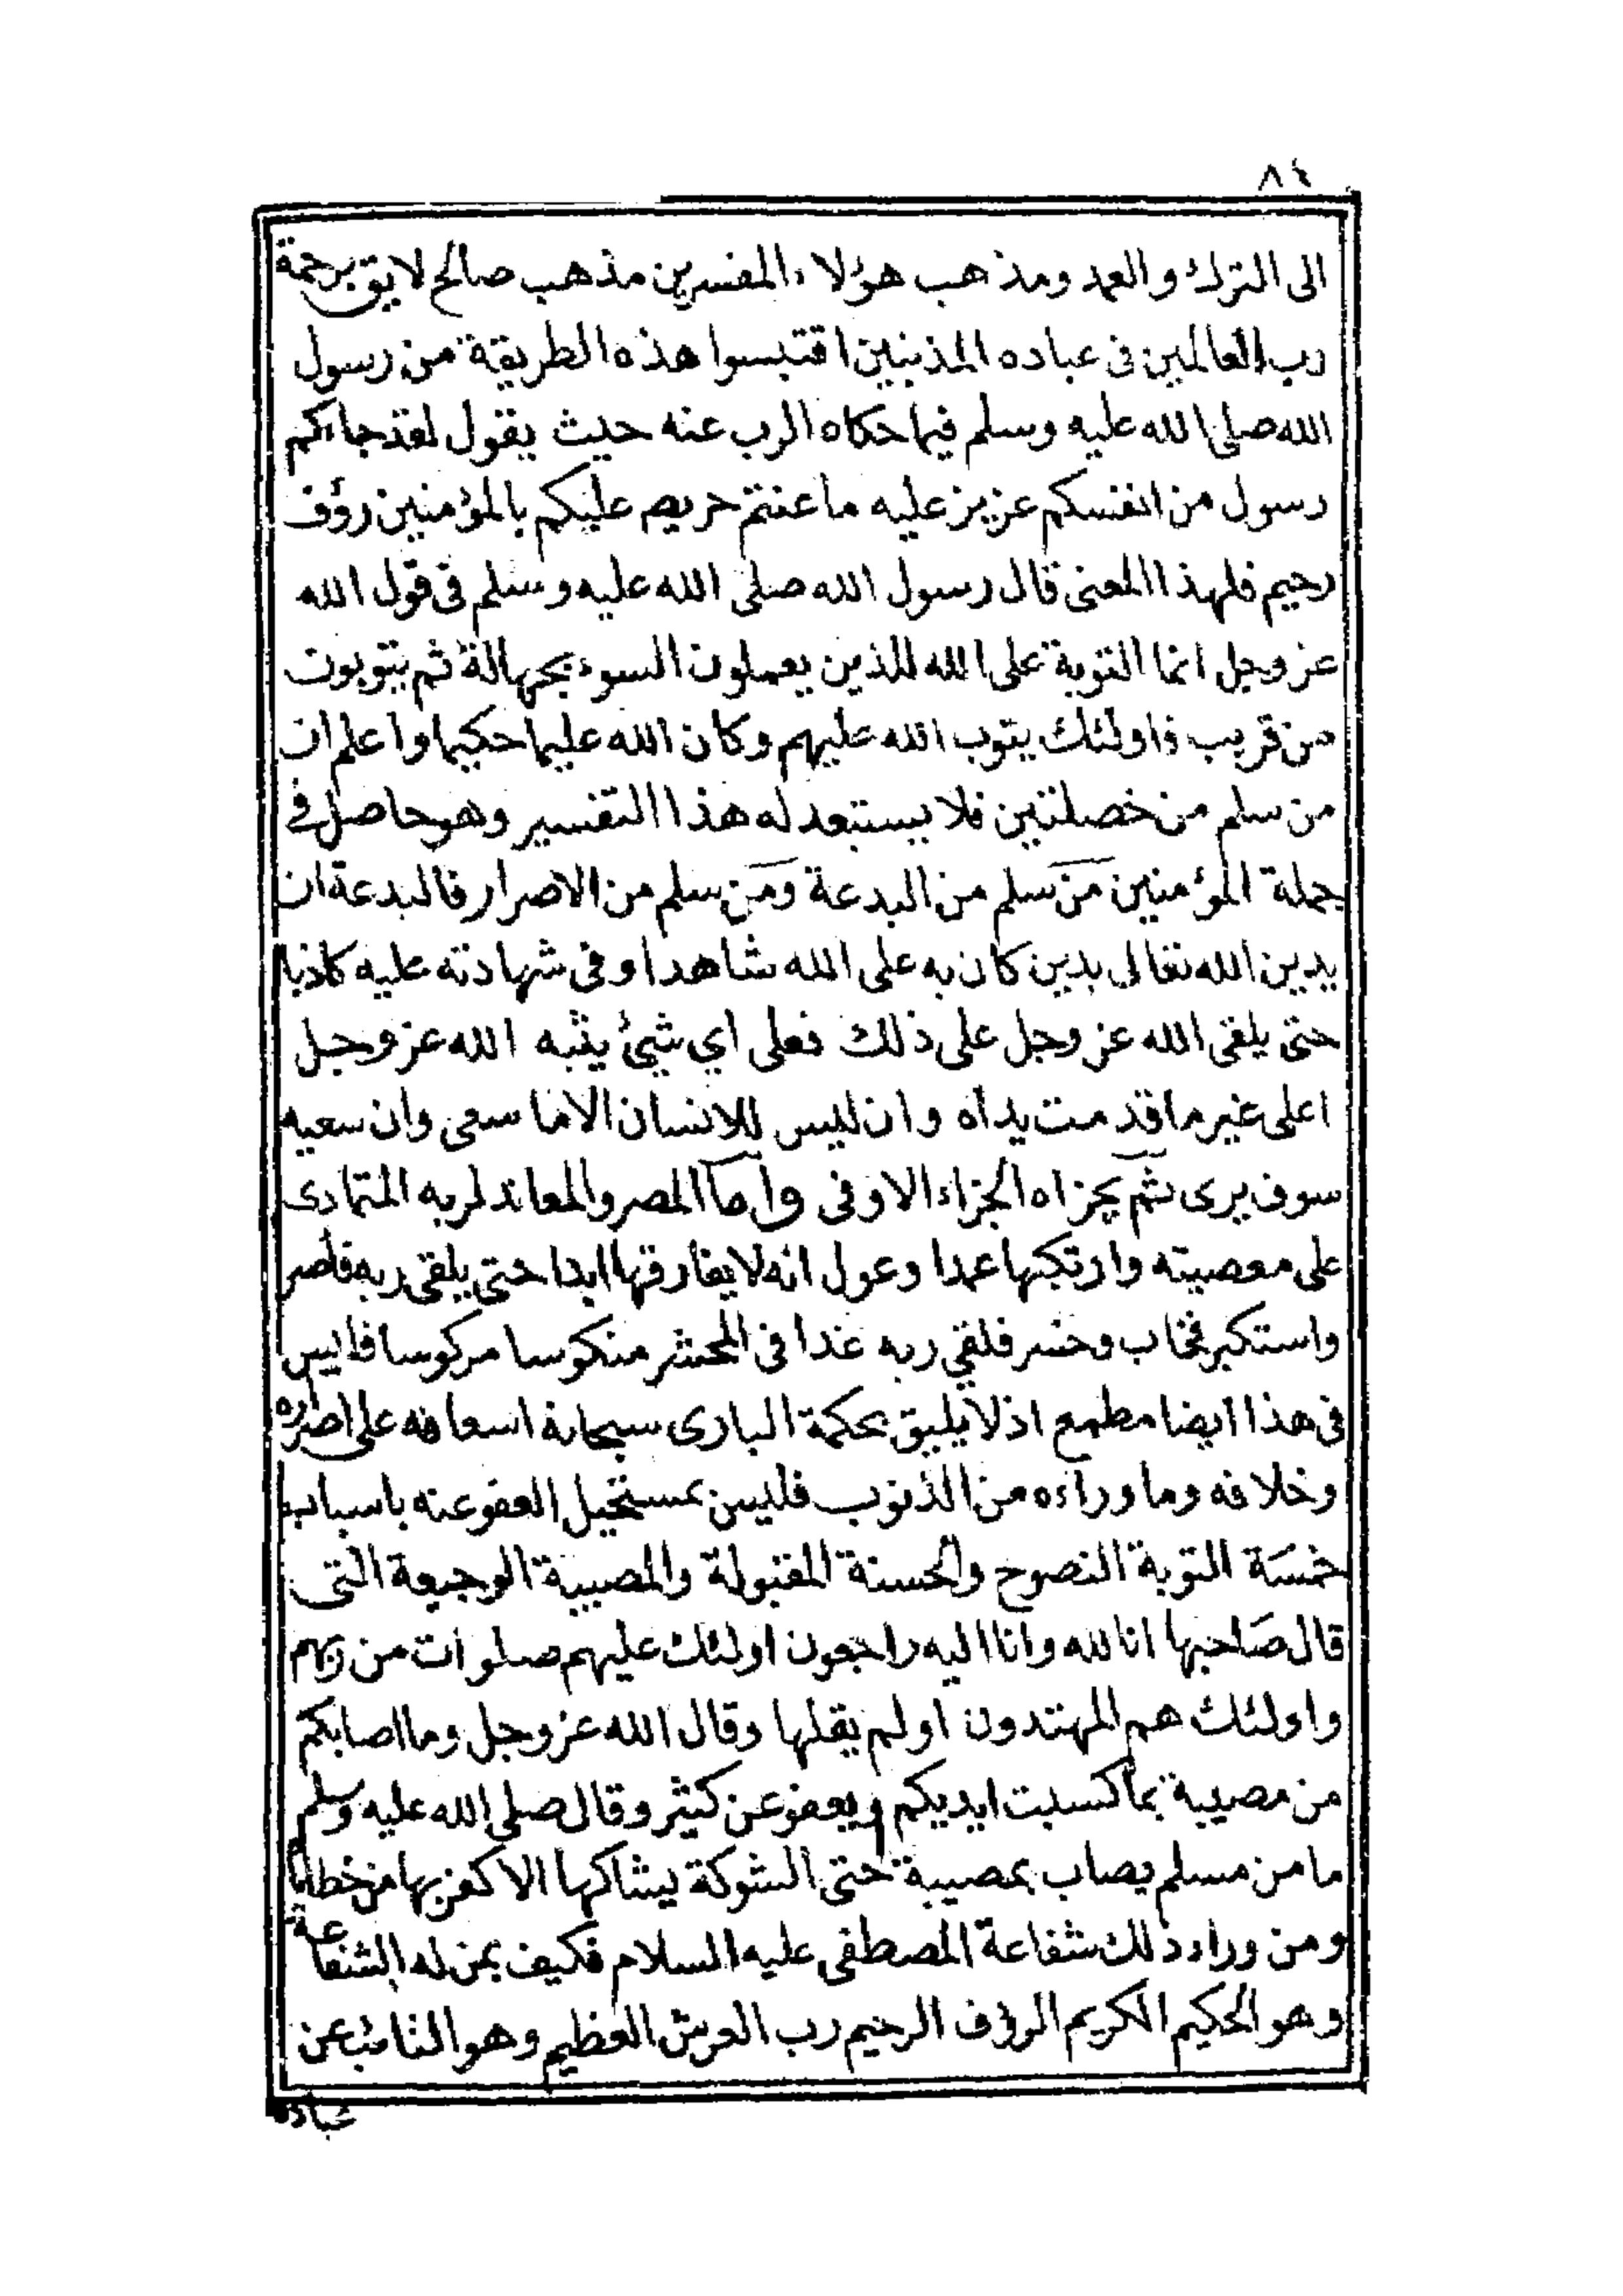 ٨٤
الى الترك والعمد ومذهب هؤلاء المفسرين مذهب صالح لايق برحمة
رب العالمين فى عباده المذنبين اقتبسوا هذه الطريقة من رسول
الله صلى الله عليه وسلم فيما حكاه الرب عنه حيث يقول لقد جاءكم
رسول من انفسكم عزيز عليه ما عنتم حريص عليكم بالمؤمنين رؤف
رحيم فلهذا المعنى قال رسول الله صلى الله عليه وسلم فى قول الله
عز وجل انما التوبة على الله للذين يعملون السوء بجهالة ثم يتوبون
من قريب فاولئك يتوب الله عليهم وكان الله عليما حكيما واعلم ان
من سلم من خصلتين فلا يستبعد له هذا التفسير وهو حاصل فى
جملة المؤمنين مَن سلم من البدعة ومَن سلم من الاصرار فالبدعة ان
يدين الله تعالى بدين كان به على الله شاهدا وفى شهادته عليه كاذبا
حتى يلقى الله عز وجل على ذلك فعلى اي شيئ يثبه الله عز وجل
اعلى غير ما قدمت يداه وان ليس للانسان الا ما سعى وان سعيه
سوف يرى ثم يجزاه الجزاء الاوفى وامّا المصر والمعاند لربه المتمادى
على معصيته وارتكبها عمدا وعول انه لا يفارقها ابدا حتى يلقى ربه فأصر
واستكبر فخاب وخسر فلقي ربه غدا فى المحشر منكوسا مركوسا فليس
فى هذا ايضا مطمع اذ لا يليق بحكمة البارى سبحانه اسعافه على اصراره
وخلافه وما وراءه من الذنوب فليس بمستحيل العفو عنه باسباب
خمسَة التوبة النصوح والحسنة المقبولة والمصيبة الوجيعة التى
قال صَاحبها انا لله وانا اليه راجعون اولئك عليهم صلوات من ربهم
واولئك هم المهتدون او لم يقلها وقال الله عز وجل وما اصابكم
من مصيبة بما كسبت ايديكم ويعفو عن كثير وقال صلى الله عليه وسلم
ما من مسلم يصاب بمصيبة حتى الشوكة يشاكها الا كفر بها من خطايا
ومن وراء ذلك شفاعة المصطفى عليه السلام فكيف بمن له الشفاعة
وهو الحكيم الكريم الرؤف الرحيم رب العرش العظيم وهو النائب عن
عباده